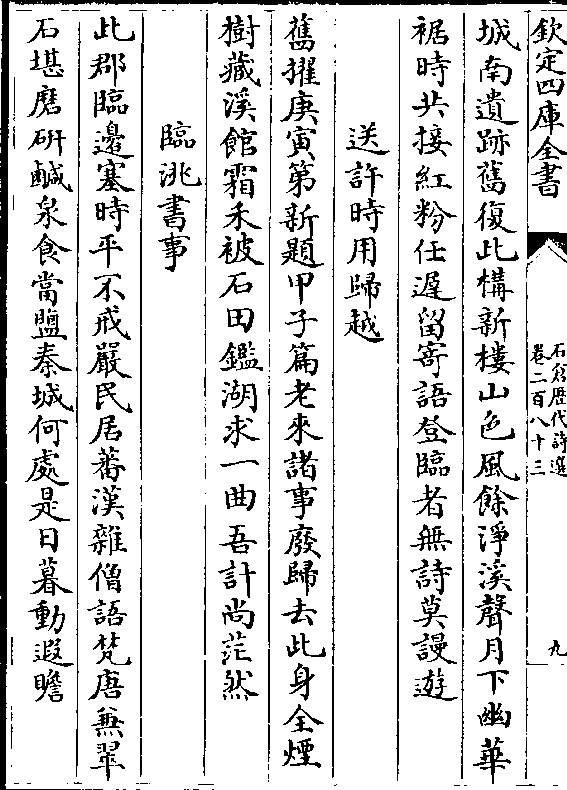 欽定四庫全書
石倉歴代詩選
卷二百八十三
九
城南遺跡舊復此構新樓山色風餘淨溪聲月下幽華
裾時共接紅粉任遲留寄語登臨者無詩莫謾遊
送許時用歸越
舊擢庚寅第新題甲子篇老來諸事廢歸去此身全煙
樹藏溪館霜禾被石田鑑湖求一曲吾計尚茫然
臨洮書事
此郡臨邊塞時平不戒嚴民居蕃漢雜僧語梵唐兼翠
石堪磨硏鹹泉食當鹽秦城何處是日暮動遐瞻